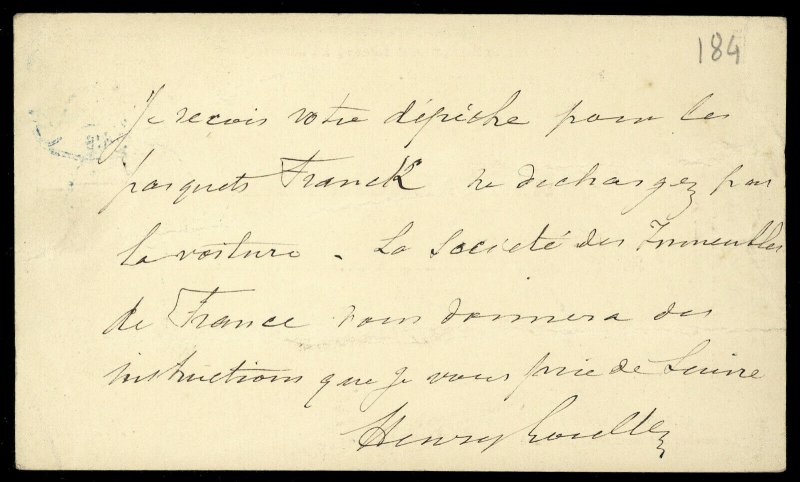 184
Je recois votre dépêche pour les
parquets Franck ne dechargez pas
la voiture - La Société des Immeubles
de France vous donnera des
instructions que je vous prie de suivre
Henry